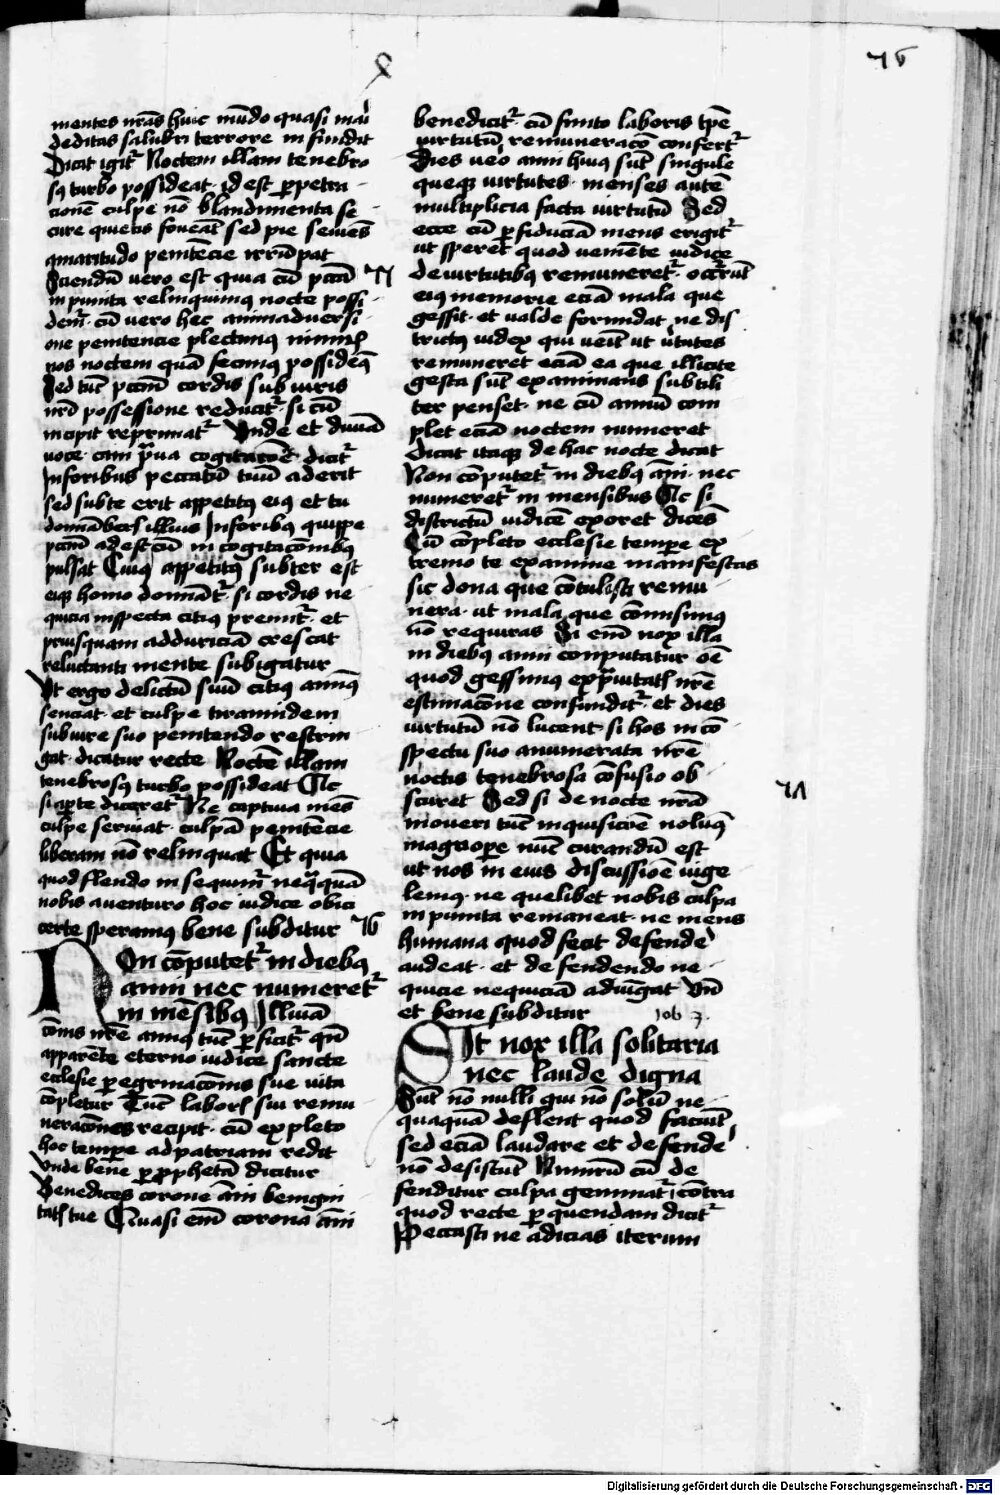 75
mentes nr̄as huic mūdo quasi mal̕
deditas salubri terrore in fundit
Dicat igit᷑ Noctem illam tenebro
sꝰ turbo possideat · id est ꝑpetra
cionē culpe nō blandimenta se
cure quietis foueāt sed pie seuiēs
amaritudo penitēcie irrūpat
Sciendū vero est quia cū pccā
in punita relinquimꝰ nocte possi
dem᷑ · cū vero hec animaduersi
one penitencie plectimꝰ nimirū
nos noctem quā fecimꝰ possidemꝰ
Sed tūc pccm̄ cordis sub iuris
nr̄i possessione reducit᷑ · si cū
incipit reprimat᷑ Vnde et diuīa
voce · caim p̄ua cogitāti · dicit᷑
In foribus peccatū tuū aderit
sed sub te erit appetitꝰ eiꝰ et tu
dominaberis illius In foribꝰ quippe
pccm̄ adest cū in cogitacōnibꝰ
pulsat Cuiꝰ appetitꝰ subter est
eiqꝫ homo domināt᷑ · si cordis ne
quicia inspecta citiꝰ premit᷑ · et
priusquam ad duriciā crescat
reluctanti mente subigatur
Vt ergo delictū suū citiꝰ animꝰ
senciat · et culpe tiramidem
sub iure suo penitendo restrin
gat · dicatur recte Noctē illam
tenebrosꝰ turbo possideat Ac
si aꝑte diceret᷑ Ne captiua mēs
culpe seruiat · culpā penitēcie
liberam nō relinquat Et quia
quod flendo in sequim᷑ neqͣquā
nobis a venturo hoc iudice obici
certe speramꝰ bene subditur 76
Non cōputet᷑ in diebꝰ
anni nec numeret᷑
in mēsibꝰ Illuīa
cōnis nr̄e annꝰ tūc ꝑficit᷑ qn̄
apparēte eterno iudice sancte
ecclesie ꝑegrinacōnis sue vita
cōpletur Tūc laboris sui remu
neracōnes recipit · cū expleto
hoc tempore ad patriam redit
Vnde bene ꝑ ꝓphetā dicitur
Benedices corone āni benigni
tatis tue Quasi em̄ corona āni
benedicit᷑ · cū finito laboris tꝑe
virtutū remuneracō confert᷑
Dies vero anni huiꝰ sūt singule
queqꝫ virtutes · menses autē
multiplicia facta virtutū Sed
ecce cū ꝑ fiduciā mens erigit᷑
ut speret quod veniēte iudice
de virtutibꝰ remuneret᷑ · occr̄rūt
eiꝰ memorie eciā mala que
gessit · et valde formidat ne dis
trictꝰ iudex qui venit ut v̄tutes
remuneret eciā ea que illicite
gesta sūt examinans subtili
ter penset · ne cū annū com
plet eciā noctem numeret
Dicat itaqꝫ de hac nocte dicat
Non cōputet᷑ in diebꝰ āni · nec
numeret᷑ in mensibus Ac si
districtū iudicē exoret dicēs
Cū cōpleto ecclesie tempore ex
tremo te examine manifestas
sic dona que cōtulisti remu
nera · ut mala que cōmisimꝰ
nō requiras Si em̄ nox illa
in diebꝰ anni conputatur oē
quod gessimꝰ ex pͥuitatis nr̄e
estimacōne confundit᷑ · et dies
virtutū nō lucent · si hos in cō
spectu suo anumerata nr̄e
noctis tenebrosa cōfusio ob
scuret Sed si de nocte nr̄a
moueri tūc inquisiciōē nolumꝰ
magnopere nūc curandū est
ut nos in eius discussiōē vige
lemꝰ · ne quelibet nobis culpa
in punita remaneat · ne mens
humana quod fecit defende᷑
audeat · et defendendo ne
quicie nequiciā adiūgat Vn̄
et bene subditur Iob 3.
Sit nox illa solitaria
nec laude digna
Sūt nō nulli qui nō solū ne
quaquā deflent quod faciūt
sed eciā laudare et defende᷑
nō desistūt Nimirū cū de
fenditur culpa geminat᷑ cōtra
quod recte ꝑ quendam dicit᷑
Peccasti ne adicias iterum
Digitalisierung gefördert durch die Deutsche Forschungsgemeinschaft - DFG